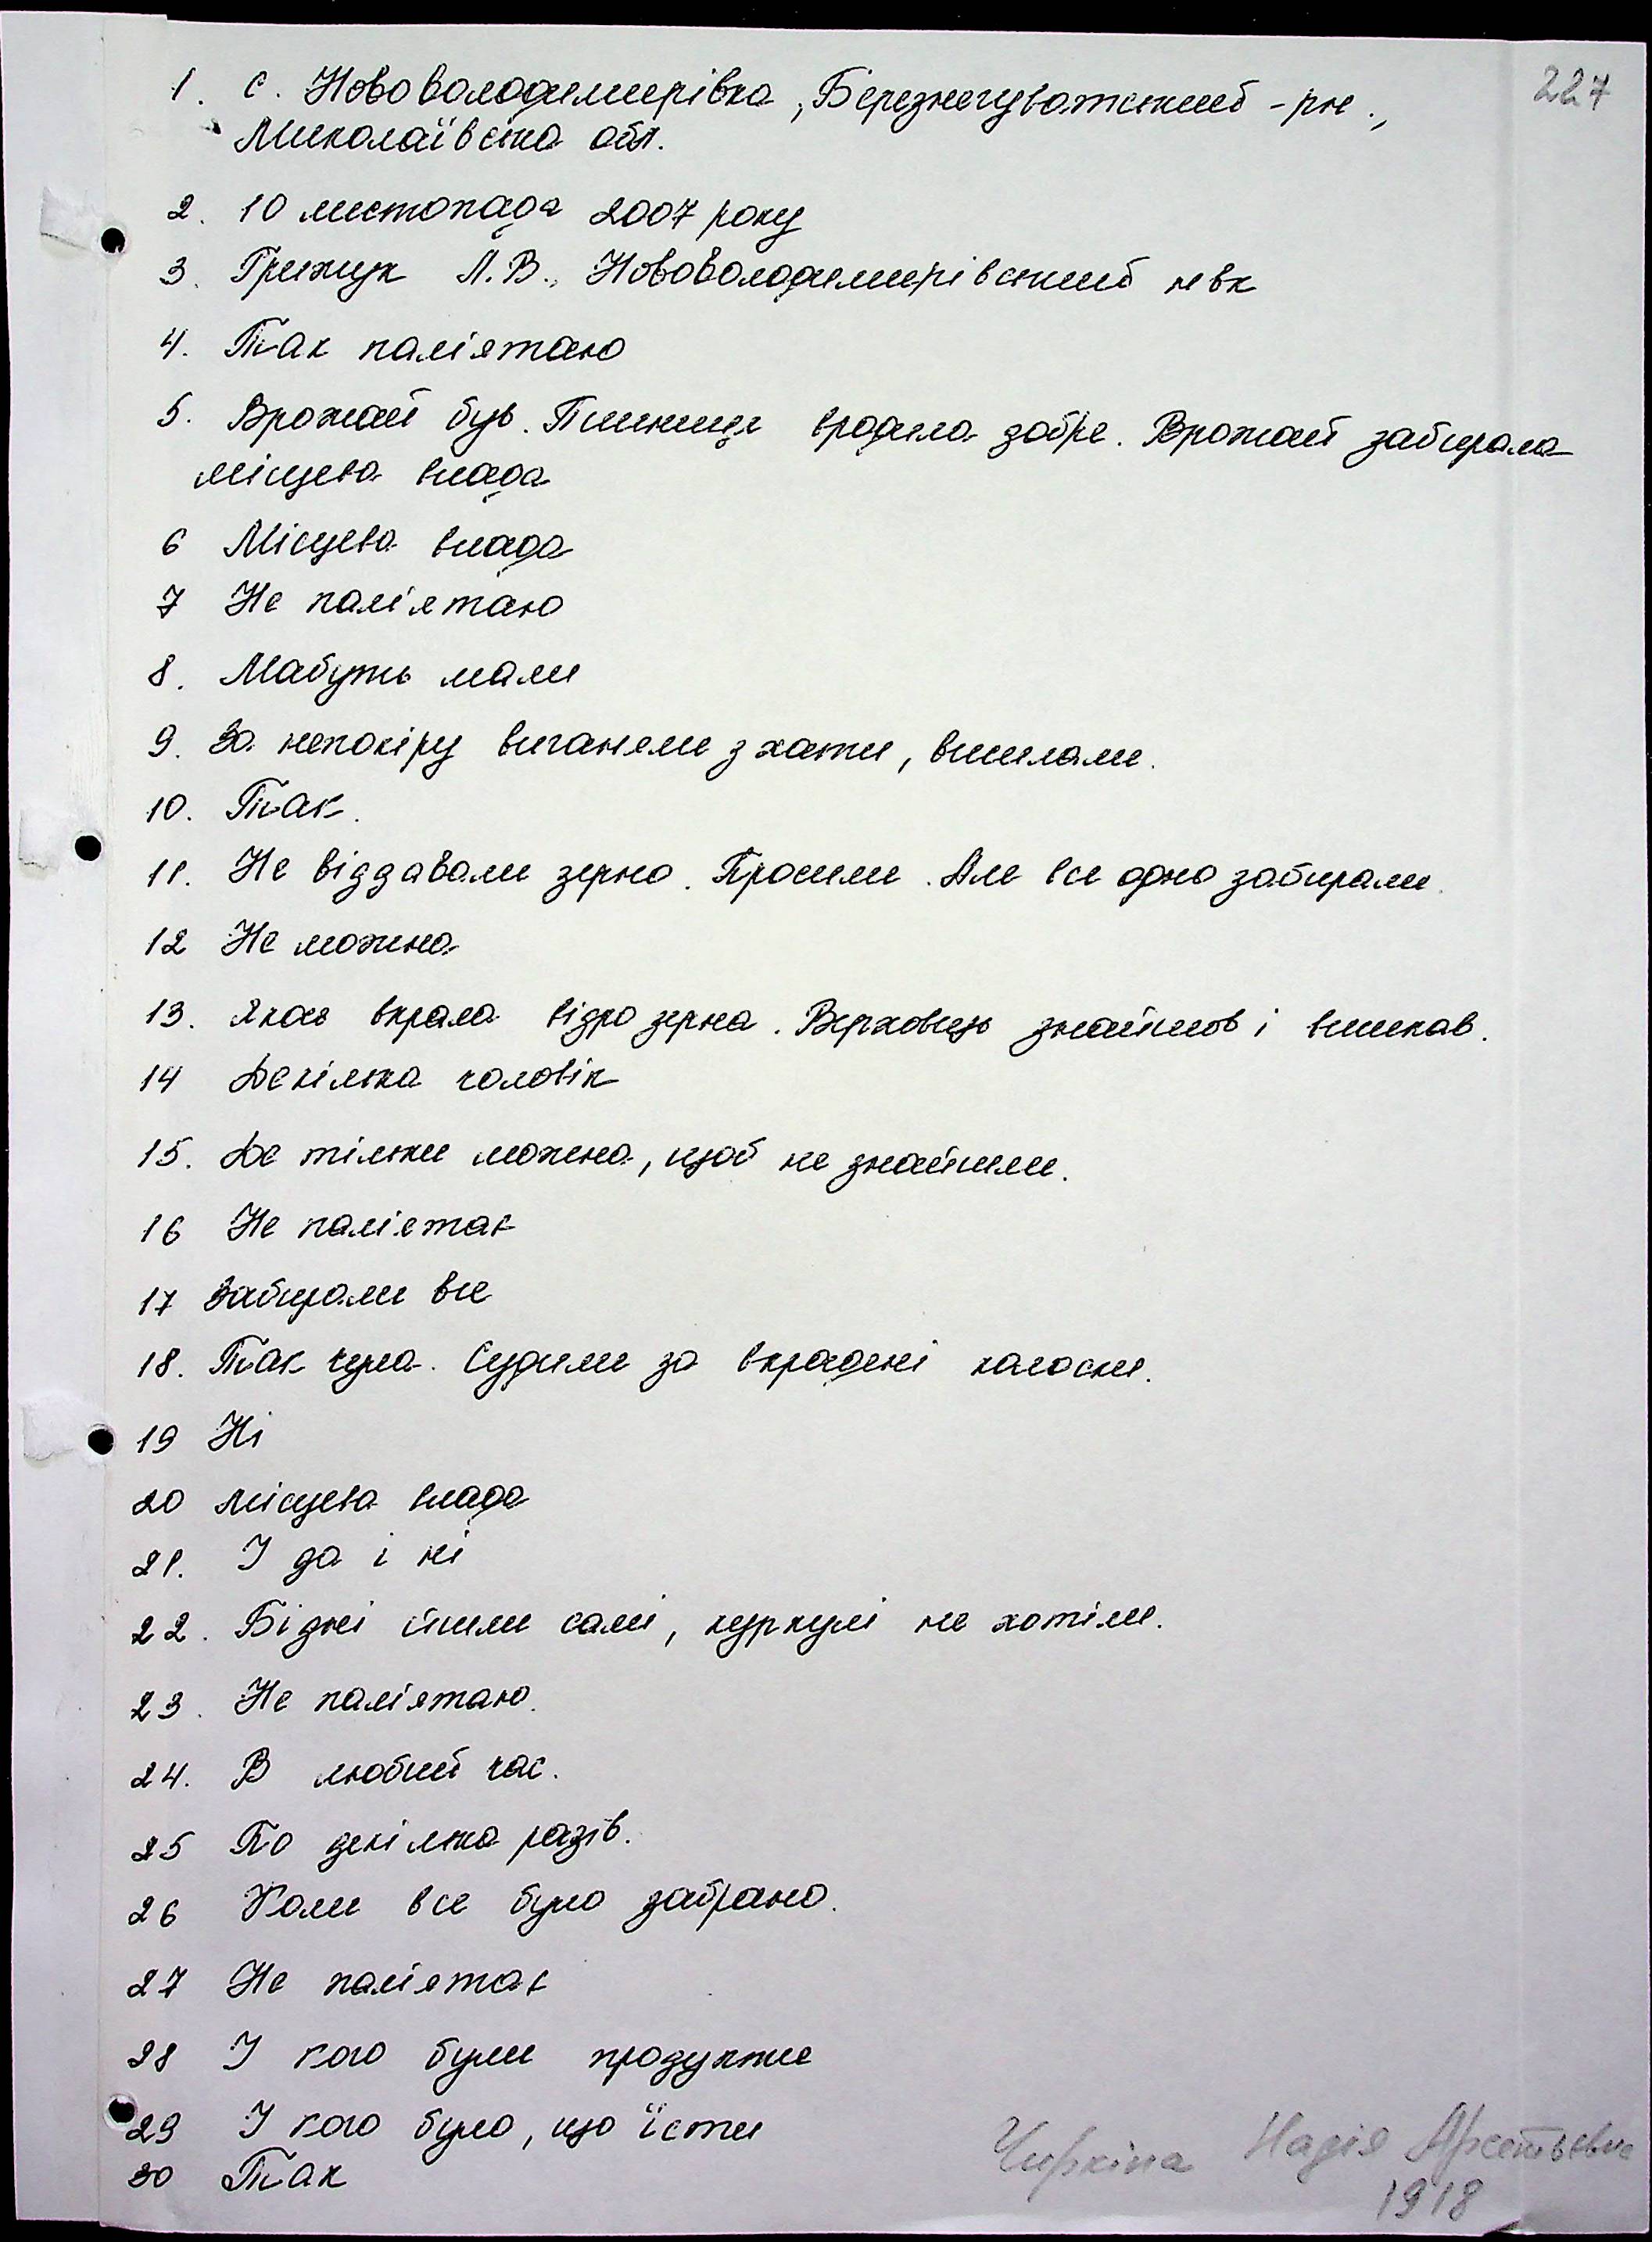 227
1. с. Нововолодимирівка, Березнегуватський - рн.,
Миколаївська обл.
2. 10 листопада 2007 року
3. Грищук Л.В., Нововолодимирівський нвк
4. Так пам'ятаю
5. Врожай був. Пшениця вродила добре. Врожай забирала
місцева влада
6 Місцева влада
7 Не пам'ятаю
8. Мабуть мали
9. За непокіру виганяли з хати, висилали.
10. Так.
11. Не віддавали зерно. Просили. Але все одно забирали.
12 Не можна
13. Якась вкрала відро зерна. Верховець знайшов і вшикав.
14 Декілька чоловік
15. Де тільки можна, щоб не знайшли.
16 Не пам'ятає
17 Забирали все
18. Так чула. Судили за вкрадені колоски.
19 Ні
20 місцева влада
21. І да і ні
22. Бідні йшли самі, куркулі не хотіли.
23. Не пам'ятаю.
24. В любий час.
25 По декілька разів.
26 Коли все було забрано.
27 Не пам'ятає
28 У кого були продукти
29 У кого було, що їсти
30 Так
Чиркіна Надія
1918